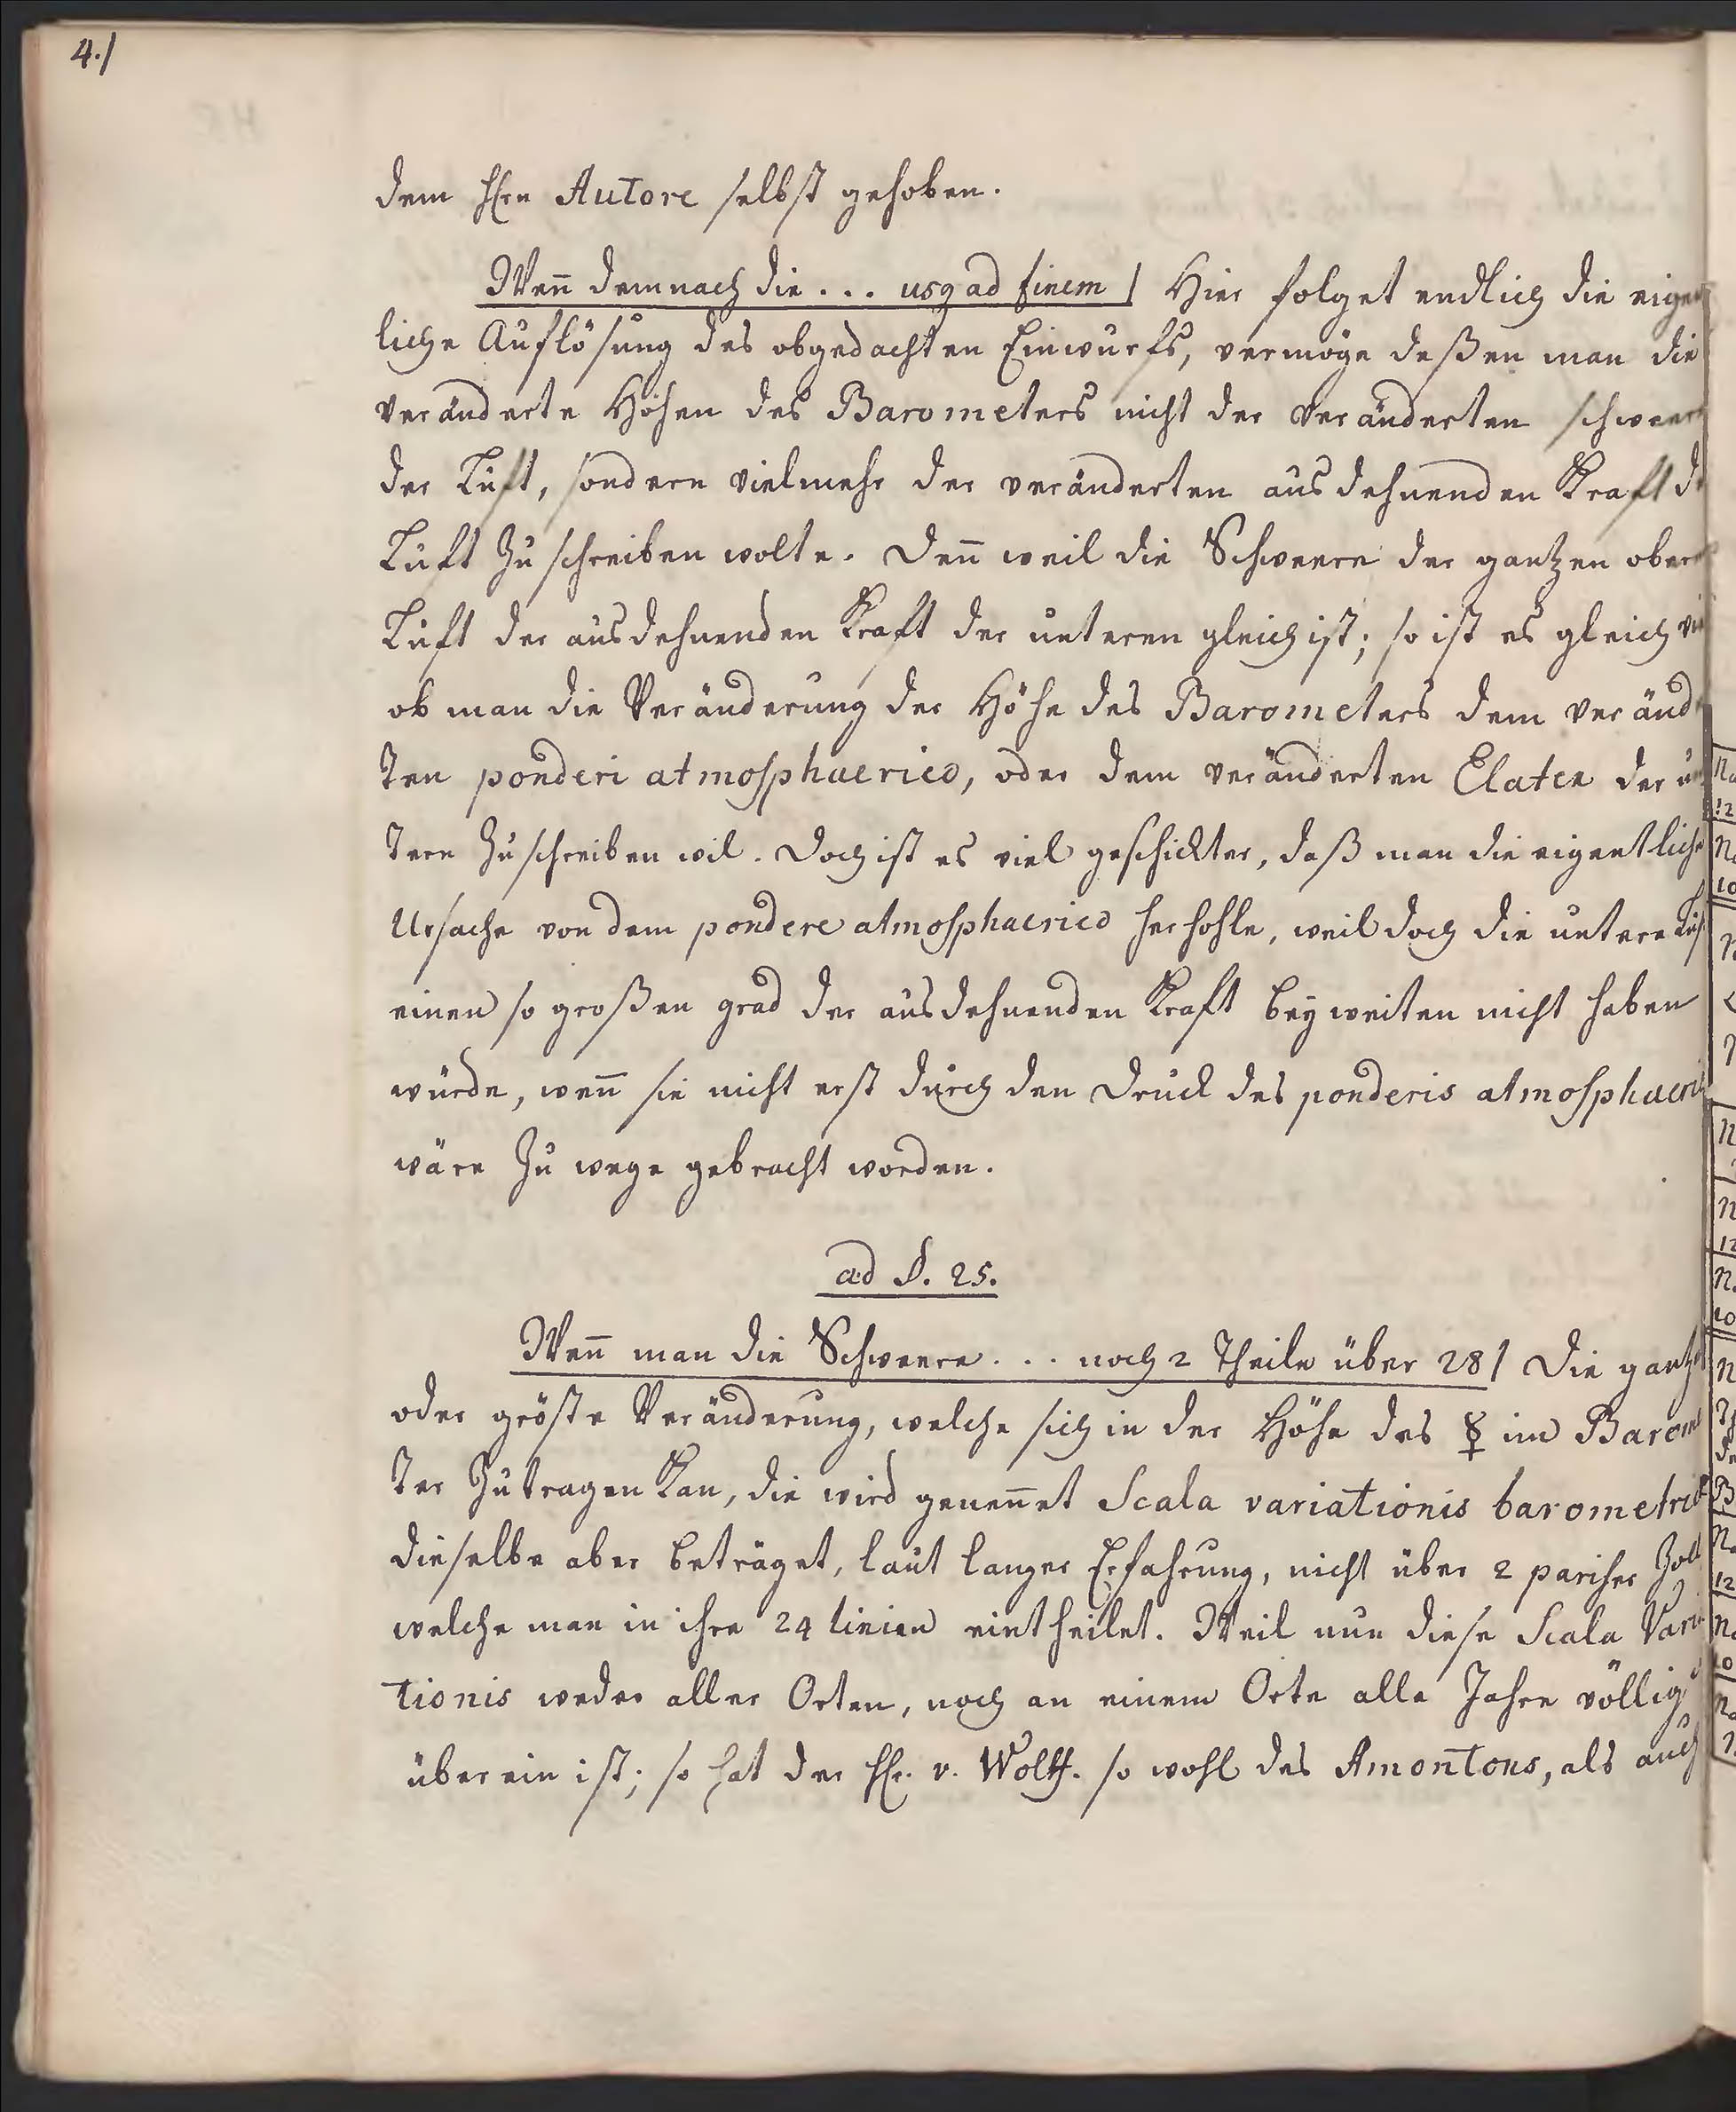 4./
dem Hrn Autore selbst gehoben.
Wenn̄ demnach die ... usq ad finem / Hier folget endlich die eigen
liche Auflösung des obgedachten Einwurfs, vermöge deßen man die
veränderte Höhen des Barometers nicht der veränderten schweere
der Luft, sondern vielmehr der veränderten ausdehnenden Kraft d
Luft zu schreiben wolte. Den̄ weil die Schweere der gantzen obern
Luft der ausdehnenden Kraft der unteren gleich ist; so ist es gleich vi
ob man die Veränderung der Höhe des Barometers dem veränd
ten ponderi atmosphaerico, oder dem veränderten Elater der un
tern zu schreiben wil. Doch ist es viel geschickter, daß man die eigentliche
Ursache von dem pondere atmosphaerico herhohle, weil doch die untere Luf
einen so großen grad der ausdehnenden Kraft bey weiten nicht haben
würde, wen̄ sie nicht erst durch den Druck des ponderis atmosphaeri
wäre zu wege gebracht worden.
ad §. 25.
Wen̄ man die Schweere ... noch 2 Theile über 28 / Die gantze
oder gröste Veränderung, welche sich in der Höhe des ☿ im Barome
ter zutragen kan, die wird genen̄et Scala variationis barometric
dieselbe aber beträget, laut langer Erfahrung, nicht über 2 pariser Zoll
welche man in ihre 24 linien eintheilet. Weil nun diese Scala Varia
tionis weder aller Orten, noch an einem Orte alle Jahre völlig
überein ist; so hat der Hr. v. Wolff. so wohl des Amontons, als auch